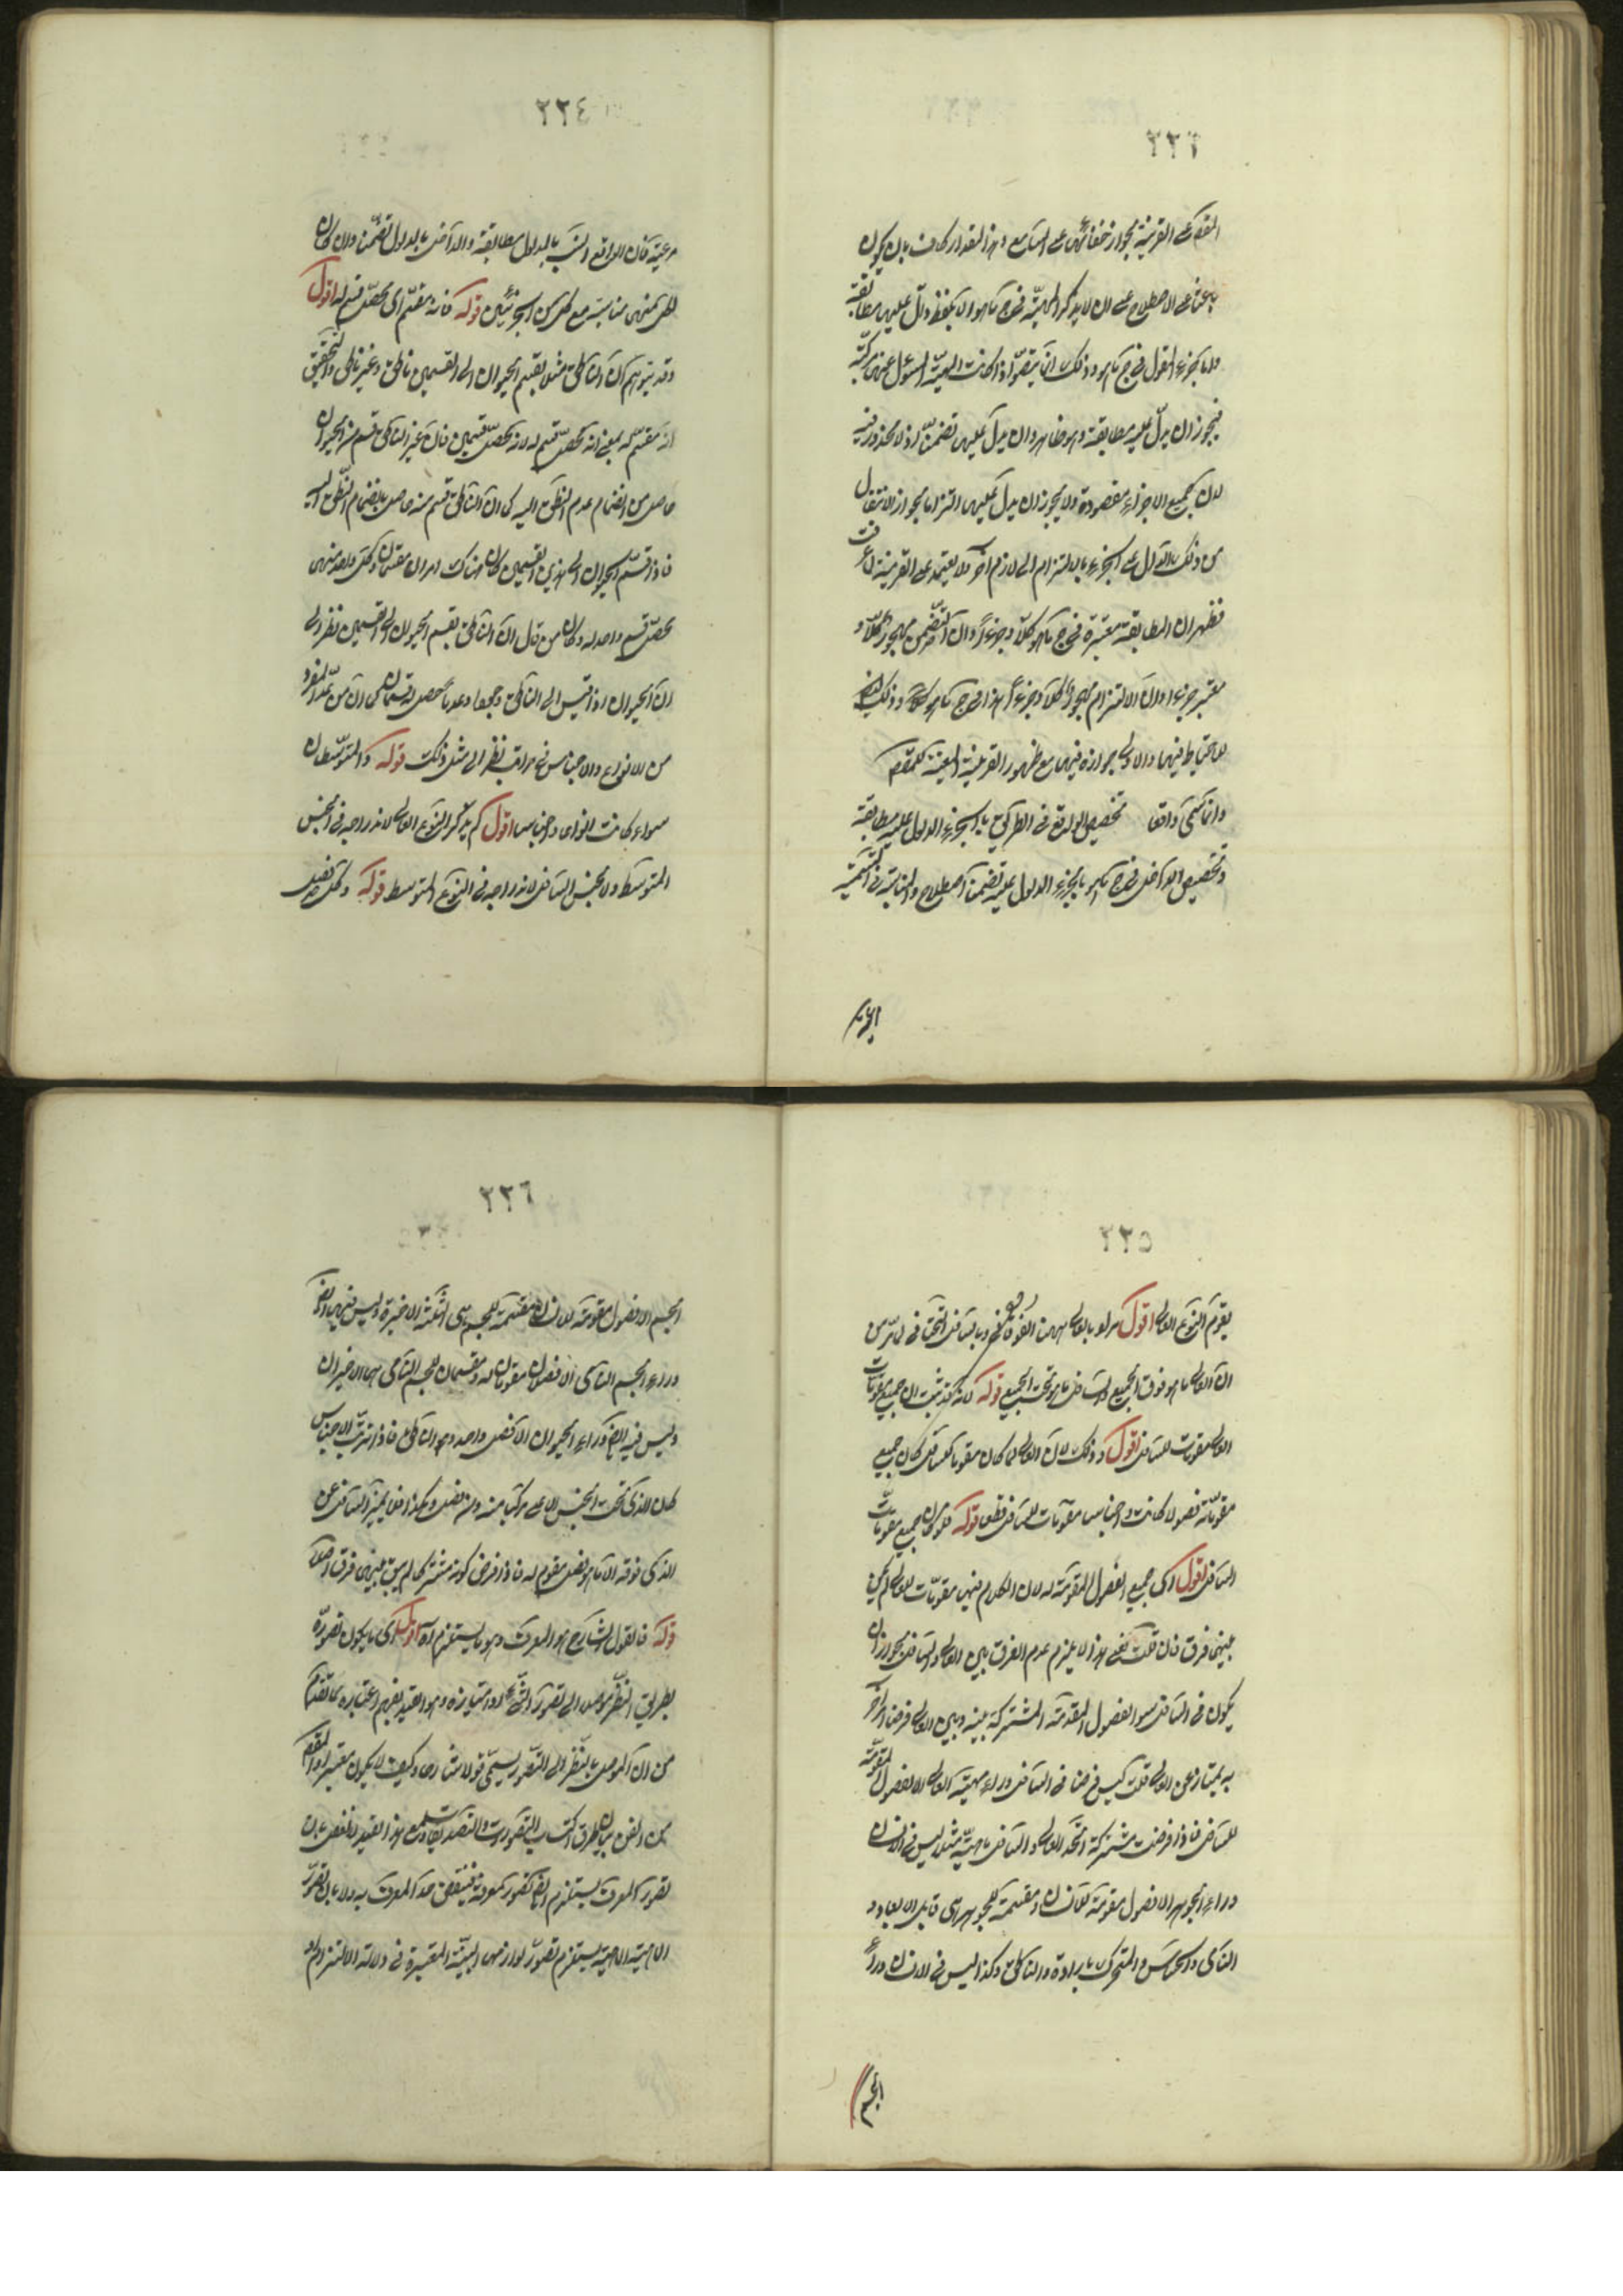 ٢٢٣
المقام على القرينة بجواز خفائها على السامع وهذا المقدار كاف بان يكون
باعثا على الاصطلاح على ان لا يذكر الماهية في جواب ما هو الا بلفظ دال عليها مطابقة
واما جزء المقول في جواب ما هو وذلك انما يتصور اذا كانت الماهية المسئول عنها مركبة
فيجوز ان يدل عليه مطابقة وهو ظاهر وان يدل عليها تضمنا اذ لا محذور فيه
لان جميع الاجزاء مقصودة ولا يجوز ان يدل عليها التزاما بجواز الانتقال
من ذلك الدال على الجزء بالالتزام الى لازم آخر ولا يعتمد على القرينة لما عرفت
فظهر ان المطابقة معتبرة في جواب ما هو كلا وجزءا وان التضمن مهجور كلا و
معتبر جزءا وان الالتزام مهجور كلا وجزءا هذا في جواب ما هو وذلك ايضا
للاحتياط فيها والاولى جوازه فيها مع ظهور القرينة المعينة للمقام
وانما سمى واقعا تخصيص الواقع في الطريق بالجزء المدلول عليه مطابقة
وتخصيص الداخل في جواب ما هو بالجزء المدلول عليه تضمنا اصطلاح والمناسبة في التسمية
٢٢٤
مرعية فان الواقع انسب بالمدلول مطابقة والداخل بالمدلول تضمنا وان كان
لكل منهما مناسبة مع كل من الجزئين قوله فانه مقسم اى محصل قسم له اقول
وقد يتوهم ان الناطق مثلا يقسم الحيوان الى القسمين ناطق وغير ناطق والتحقيق
انه مقسم له بمعنى انه محصل قسم له لا انه محصل قسمين فان غير الناطق قسم من الحيوان
حاصل من انضمام عدم النطق اليه كما ان الناطق قسم منه حاصل بانضمام النطق اليه
فاذا قسم الحيوان الى هذين القسمين كان هناك امران مقسمان وكل واحد منهما
محصل قسم واحد له وكان من قال ان الناطق يقسم الحيوان الى القسمين نظر الى
ان الحيوان اذا قيس الى الناطق وجودا وعدما حصل له قسمان
من الانواع والاجناس في مراتب نظر الى مثل ذلك قوله والمتوسطات
سواء كانت انواعا او اجناسا اقول لم يذكر النوع العالى لاندراجه في الجنس
المتوسط ولا الجنس السافل لاندراجه في النوع المتوسط قوله وكل فصل
٢٢٥
يقوم النوع العالى اقول المراد بالعالى ههنا الفوقانى وبالسافل التحتانى لما مر من
ان العالى ما هو فوق الجميع والسافل ما هو تحت الجميع قوله لانه قد ثبت ان جميع مقومات
العالى مقومات للسافل اقول وذلك لان العالى لما كان مقوما للسافل كان جميع
مقوماته فصولا كانت او اجناسا مقومات للسافل قطعا قوله فلو كان جميع مقومات
السافل اقول اى جميع الفصول المقومة له لان الكلام فيها مقومات للعالى لم يكن
بينهما فرق فان قلت هذا لا يلزم عدم الفرق بين العالى والسافل بجواز ان
يكون في السافل سوى الفصول المقومة المشتركة بينه وبين العالى فرضا امر آخر
به يمتاز عن العالى قلت ليس فرضنا في السافل وراء ماهية العالى الا الفصول المقومة
للسافل فاذا فرضت مشتركة اتحد العالى والسافل ماهية مثلا ليس في الانسان
وراء الجوهر الا فصول مقومة للانسان ومقسمة للجوهر هى قابل الابعاد و
النامى والحساس والمتحرك بالارادة والناطق وكذا ليس في الانسان وراء
الجسم
٢٢٦
الجسم الا فصول مقومة للانسان مقسمة للجسم هى الثلثة الاخيرة وليس فيه ايضا
وراء الجسم النامى الا فصلان مقومان له ومقسمان للجسم النامى هما الاخيران
وليس فيه ايضا وراء الحيوان الا فصل واحد وهو الناطق فاذا ترتب الاجناس
كان الذى تحت الجنس الاعلى مركبا منه ومن فصل وهكذا فما يميز السافل عن
الذى فوقه الا ما هو فصل مقوم له فاذا فرض كونه مشتركا لم يبق بينهما فرق اصلا
قوله فالقول الشارح هو المعرف وهو ما يستلزم اه اقول اى ما يكون تصوره
بطريق النظر موصلا الى تصور الشئ او امتيازه وهذا القيد يفهم اعتباره مما تقدم
من ان الموصل بالنظر الى التصور يسمى قولا شارحا وكيف لا يكون معتبرا والمقصود
من الفن بيان طرق اكتساب التصورات والتصديقات ومع هذا القيد
تصور المعرف يستلزم ايضا تصور معرفه فينتقض حد المعرف به ولا بان تصور
الماهية الملزومة يستلزم تصور لوازمها البينة المعتبرة في دلالة الالتزام